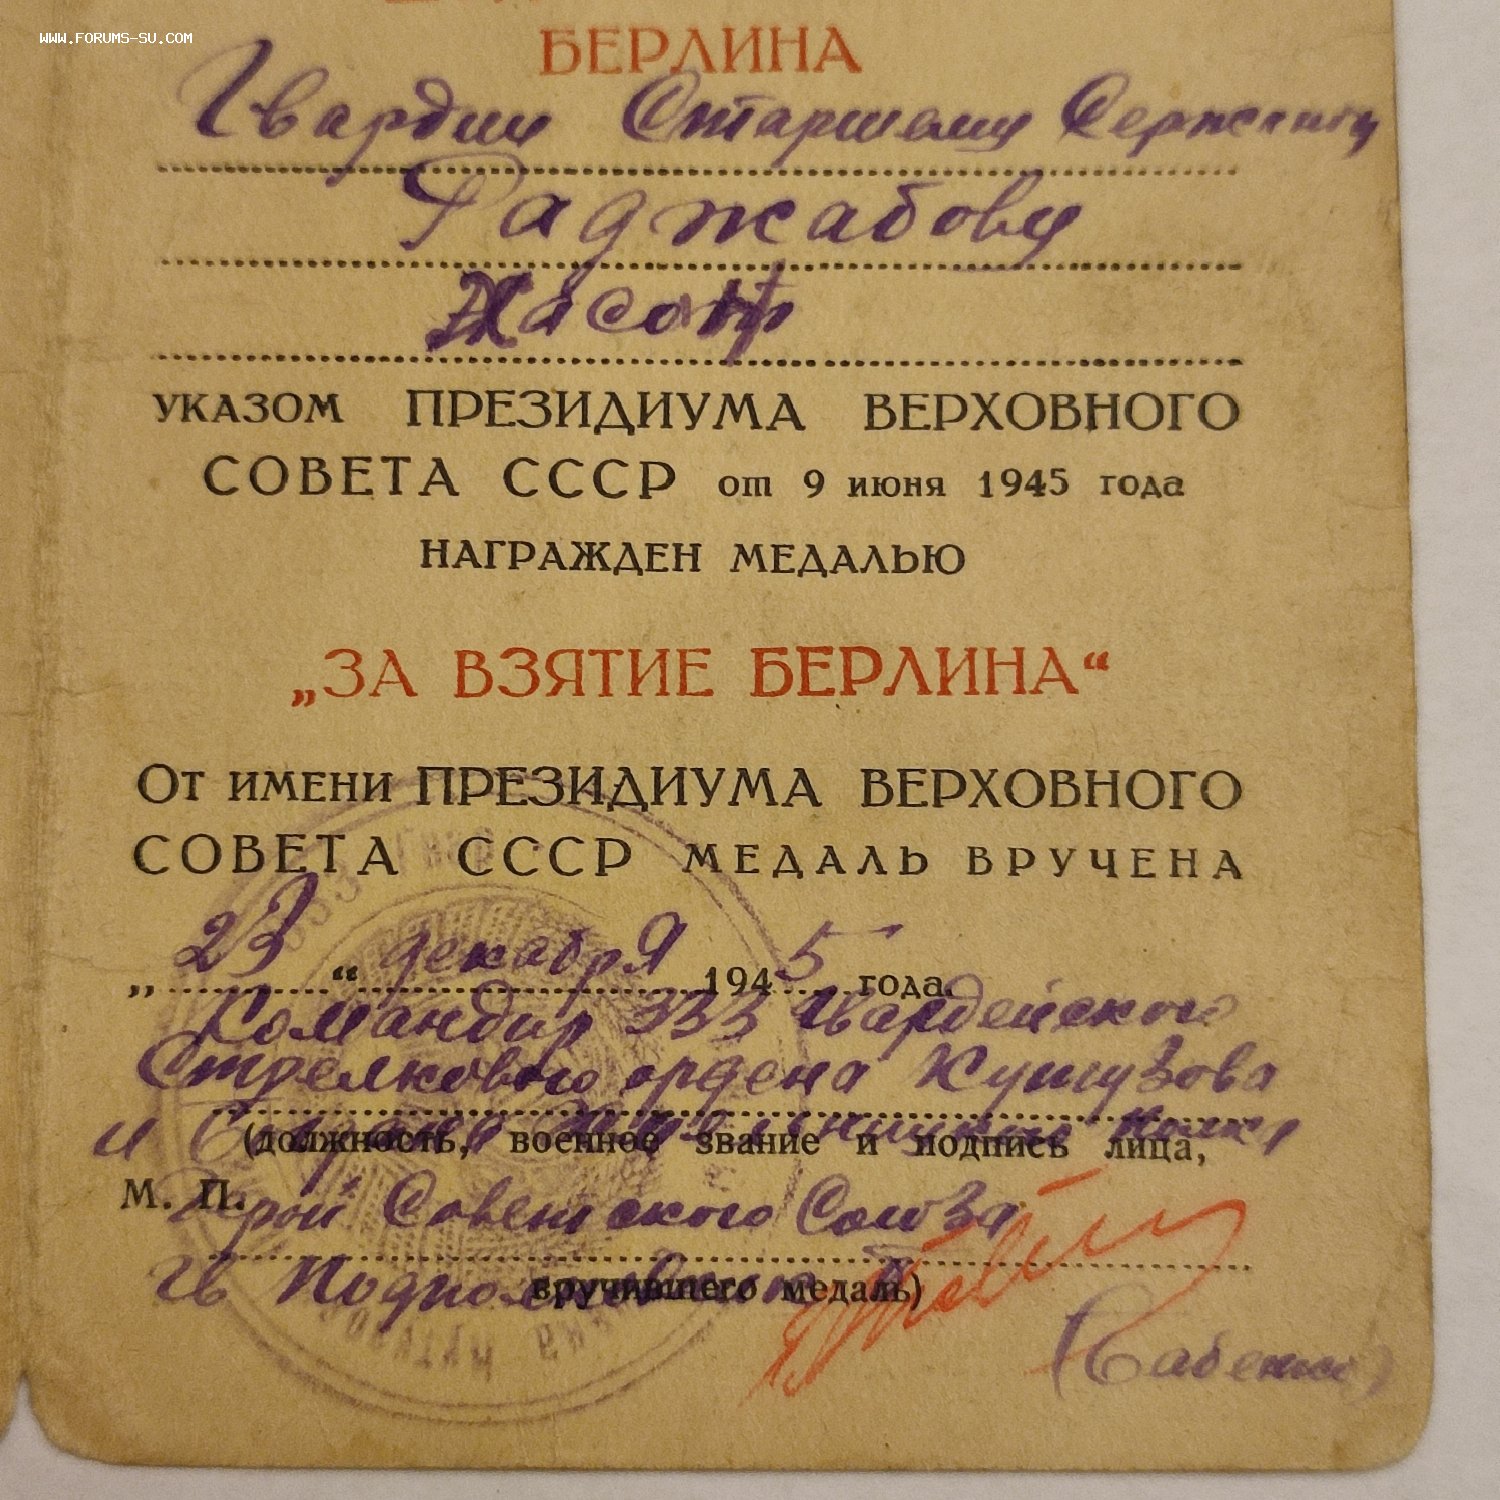 WWW.FORUMS-SU.COM
БЕРЛИНА
Гвардии Старшему Сержанту
Раджабову
УКАЗОМ ПРЕЗИДИУМА ВЕРХОВНОГО
СОВЕТА СССР от 9 июня 1945 года
НАГРАЖДЕН МЕДАЛЬЮ
„ЗА ВЗЯТИЕ БЕРЛИНА“
От имени ПРЕЗИДИУМА ВЕРХОВНОГО
СОВЕТА СССР МЕДАЛЬ ВРУЧЕНА
„23“ декабря 1945 года
Командир 333 Гвардейского
Стрелкового ордена Кутузова
и Богдана Хмельницкого полка
(должность, военное звание и подпись лица,
М. П.
Герой Советского Союза
гв Подполковник
вручившего медаль)